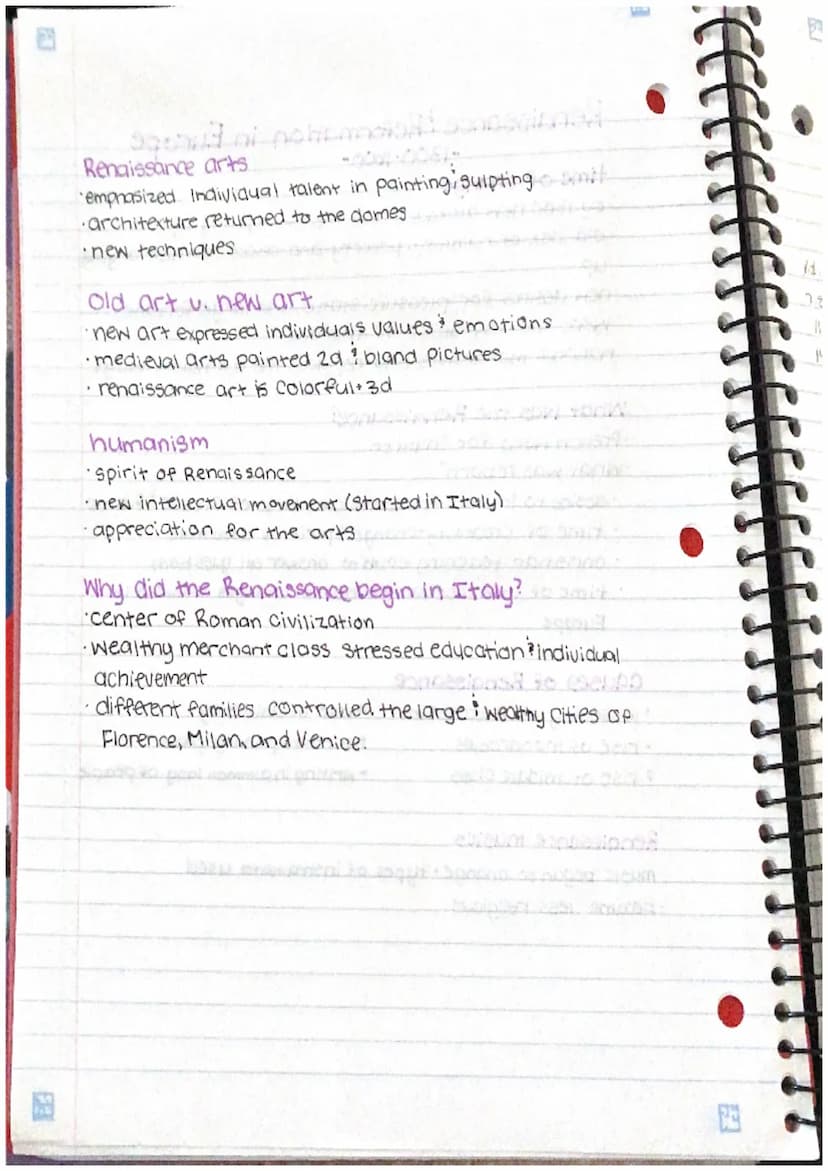 Renaissance arts
·emphasized individual talent in painting & sulpting
·architexture returned to the domes
·new techniques
Old art v. new art
·new art expressed individuals values & emotions
·medieval arts painted 2d & bland pictures
·renaissance art is colorful + 3d
humanism
·spirit of Renaissance
·new intellectual movement (started in Italy)
·appreciation for the arts
Why did the Renaissance begin in Italy?
·center of Roman civilization
·wealthy merchant class stressed education & individual
achievement
·different families controlled the large & wealthy cities of
Florence, Milan, and Venice.